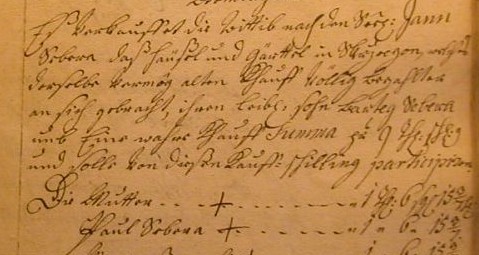 Es Verkauffet die Wittib nach den Seel: Jann
Sebera daß Häusel und Gärttel in welches
derselbe Vermög alten Kauff Völlig bezahlter
an sich gebracht, ihren Leibl. Sohn Sebera
umb Eine wahre Kauff Summa zu 9
und solle von diesen Kauff-schilling participiren
Die Mutter - - + - - - - - 1 6 15
Paul Sebera + - - - - - - 1 - 6 - 15
1 - 6 - 15